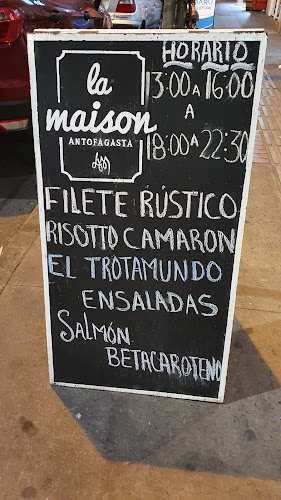 la
maison
ANTOFAGASTA
HORARIO
13:00 A 16:00
A
18:00 A 22:30
FILETE RÚSTICO
RISOTTO CAMARON
EL TROTAMUNDO
ENSALADAS
SALMÓN
BETACAROTENO